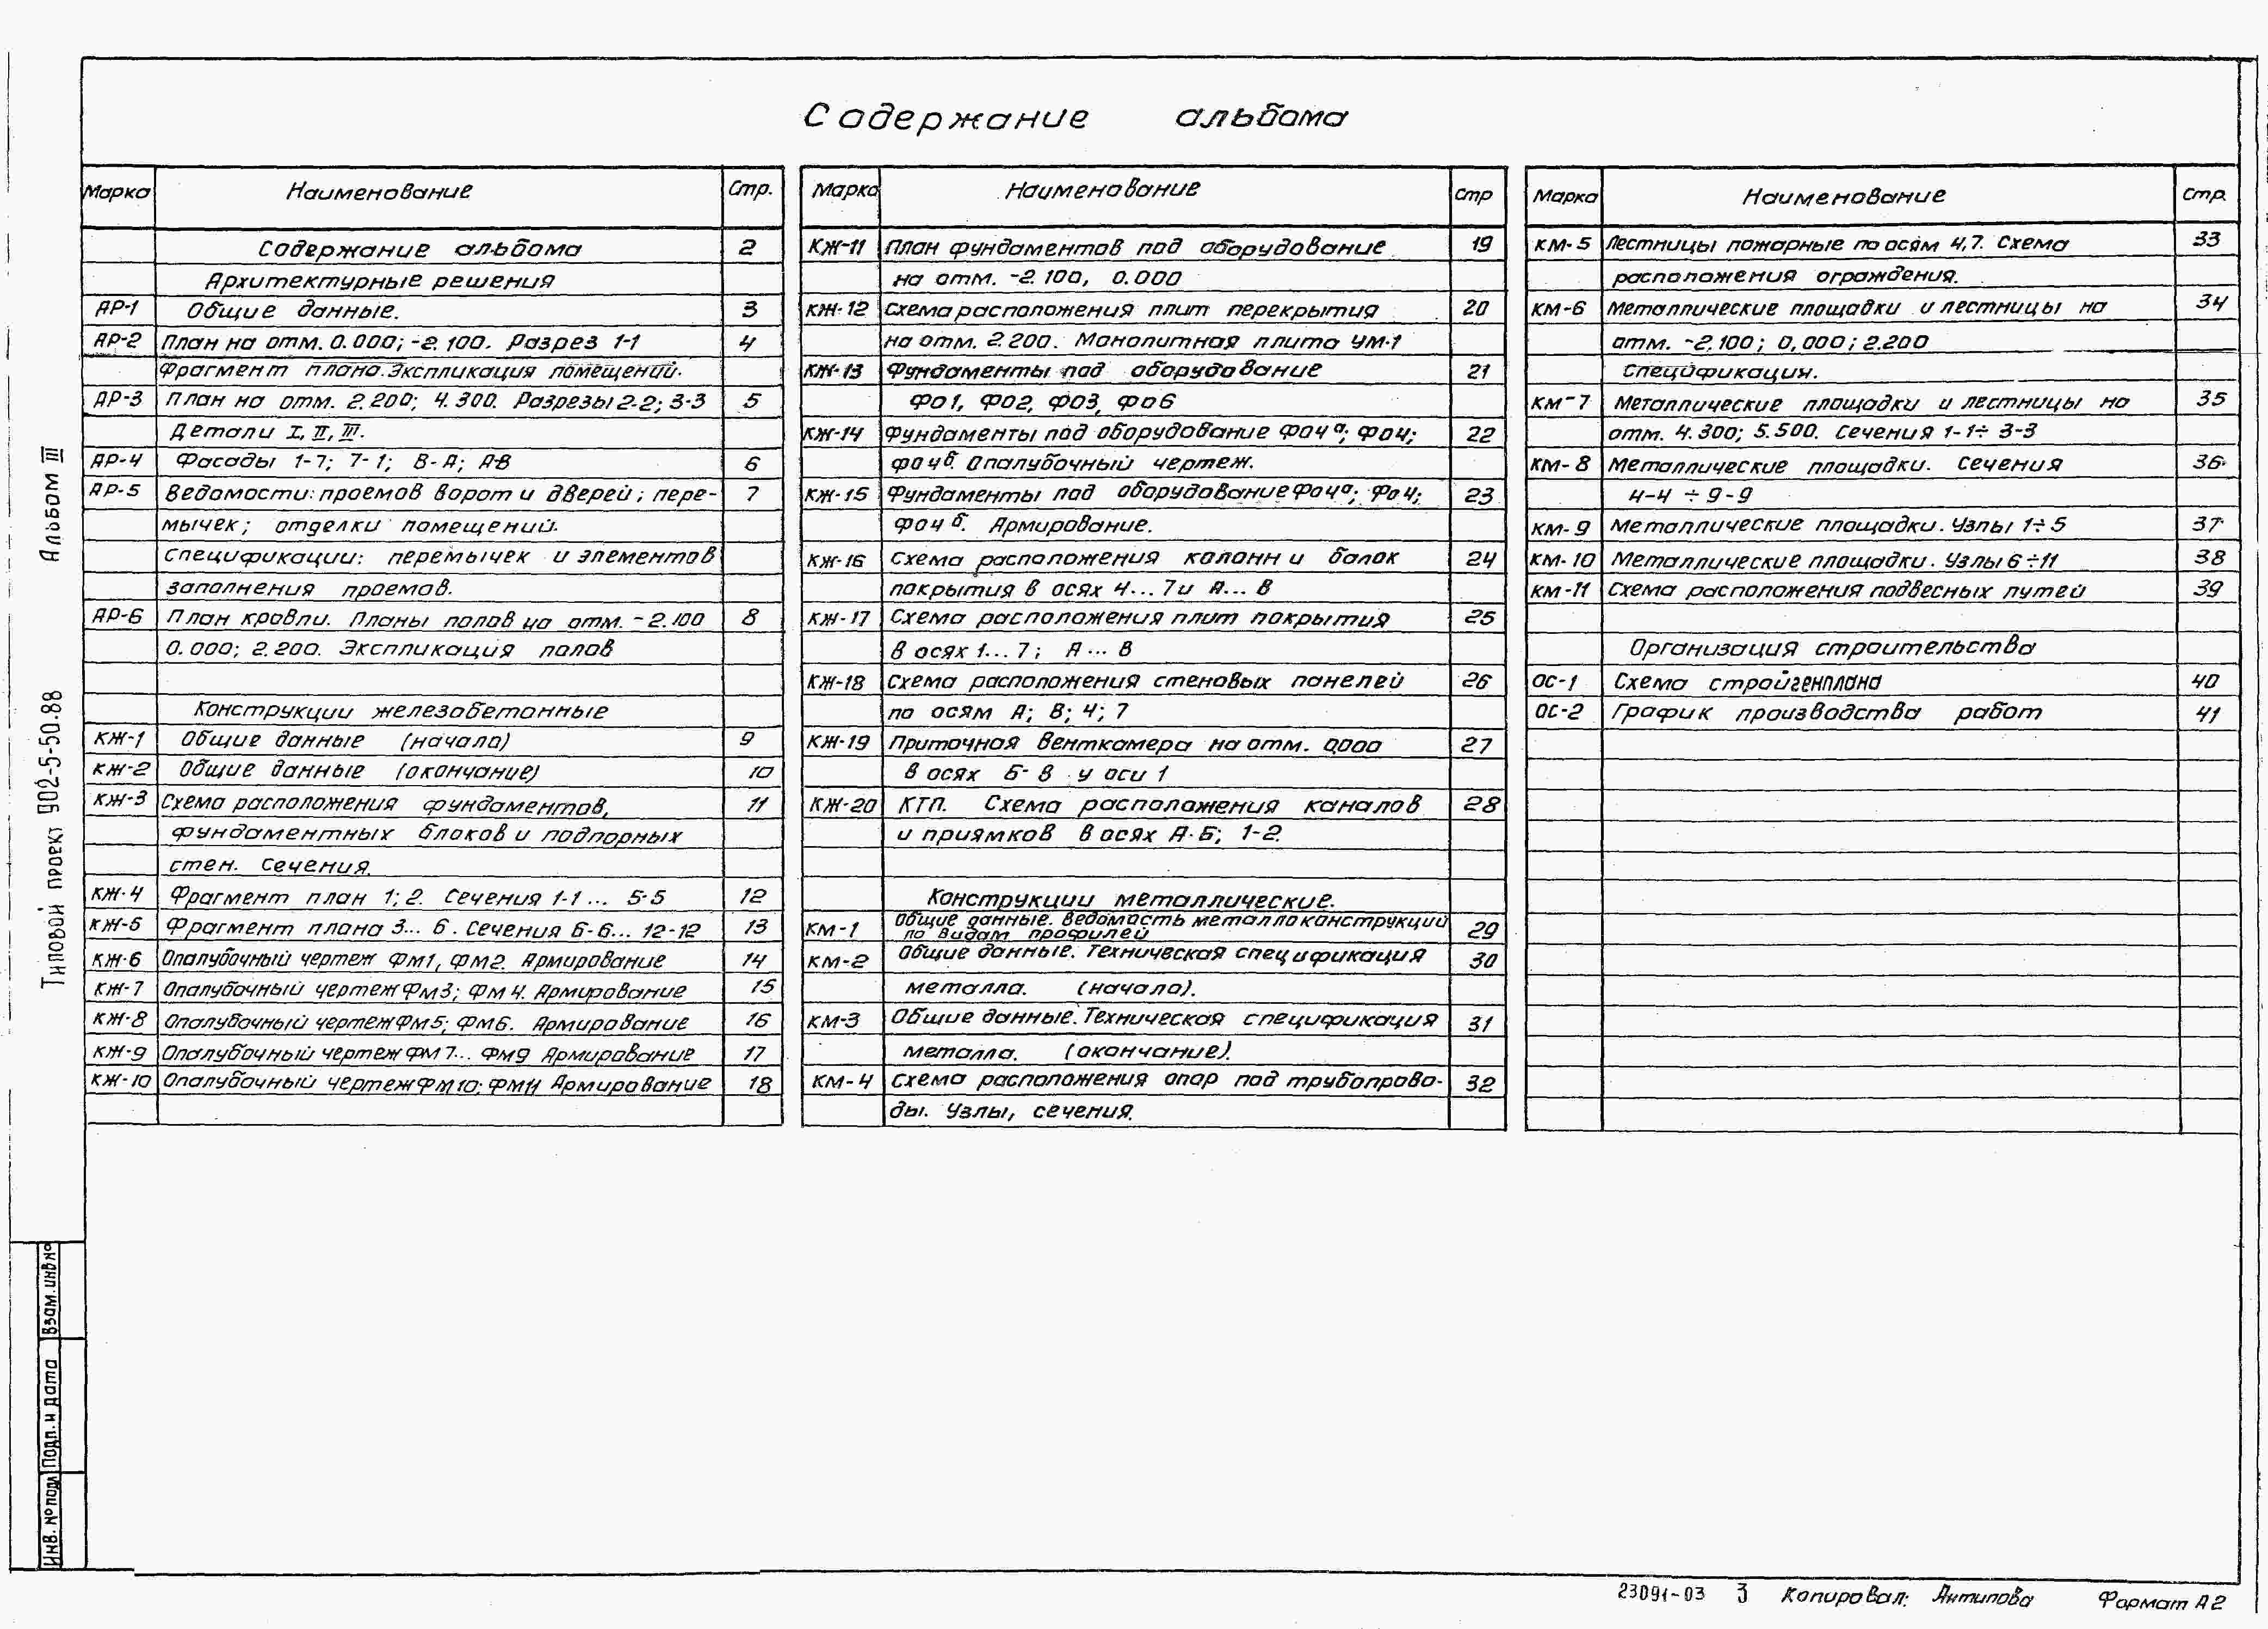 Содержание альбома
Марка Наименование Стр.
Содержание альбома 2
Архитектурные решения
АР-1 Общие данные. 3
АР-2 План на отм. 0.000; -2.100. Разрез 1-1 4
Фрагмент плана. Экспликация помещений.
АР-3 План на отм. 2.200; 4.300. Разрезы 2-2; 3-3 5
Детали I, II, III.
АР-4 Фасады 1-7; 7-1; В-А; А-В 6
АР-5 Ведомости: проемов ворот и дверей; пере- 7
мычек; отделки помещений.
Спецификации: перемычек и элементов
заполнения проемов.
АР-6 План кровли. Планы полов на отм. -2.100 8
0.000; 2.200. Экспликация полов
Конструкции железобетонные
КЖ-1 Общие данные (начало) 9
КЖ-2 Общие данные (окончание) 10
КЖ-3 Схема расположения фундаментов, 11
фундаментных блоков и подпорных
стен. Сечения.
КЖ-4 Фрагмент план 1; 2. Сечения 1-1... 5-5 12
КЖ-5 Фрагмент плана 3... 6. Сечения 6-6... 12-12 13
КЖ-6 Опалубочный чертеж Фм1, Фм2. Армирование 14
КЖ-7 Опалубочный чертеж Фм3; Фм4. Армирование 15
КЖ-8 Опалубочный чертеж Фм5; Фм6. Армирование 16
КЖ-9 Опалубочный чертеж Фм7... Фм9 Армирование 17
КЖ-10 Опалубочный чертеж Фм10; Фм11 Армирование 18
Марка Наименование Стр
КЖ-11 План фундаментов под оборудование 19
на отм. -2.100, 0.000
КЖ-12 Схема расположения плит перекрытия 20
на отм. 2.200. Монолитная плита УМ-1
КЖ-13 Фундаменты под оборудование 21
Фо1, Фо2, Фо3, Фо6
КЖ-14 Фундаменты под оборудование Фо4а; Фо4; 22
Фо4б. Опалубочный чертеж.
КЖ-15 Фундаменты под оборудование Фо4а; Фо4; 23
Фо4б. Армирование.
КЖ-16 Схема расположения колонн и балок 24
покрытия в осях 4... 7 и А... В
КЖ-17 Схема расположения плит покрытия 25
в осях 1... 7; А... В
КЖ-18 Схема расположения стеновых панелей 26
по осям А; В; 4; 7
КЖ-19 Приточная венткамера на отм. 0,000 27
в осях Б-В у оси 1
КЖ-20 КТП. Схема расположения каналов 28
и приямков в осях А-Б; 1-2.
Конструкции металлические.
КМ-1 Общие данные. Ведомость металлоконструкций 29
по видам профилей
КМ-2 Общие данные. Техническая спецификация 30
металла. (начало).
КМ-3 Общие данные. Техническая спецификация 31
металла. (окончание).
КМ-4 Схема расположения опор под трубопрово- 32
ды. Узлы, сечения.
Марка Наименование Стр.
КМ-5 Лестницы пожарные по осям 4,7. Схема 33
расположения ограждения.
КМ-6 Металлические площадки и лестницы на 34
отм. -2.100; 0,000; 2.200
Спецификация.
КМ-7 Металлические площадки и лестницы на 35
отм. 4.300; 5.500. Сечения 1-1÷3-3
КМ-8 Металлические площадки. Сечения 36
4-4÷9-9
КМ-9 Металлические площадки. Узлы 1÷5 37
КМ-10 Металлические площадки. Узлы 6÷11 38
КМ-11 Схема расположения подвесных путей 39
Организация строительства
ОС-1 Схема стройгенплана 40
ОС-2 График производства работ 41
Типовой проект 902-5-50.88 Альбом III
Инв. № подл Подп. и дата Взам. инв №
23091-03 3 Копировал: Антипова Формат А2